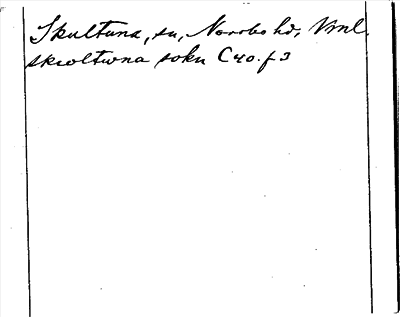 Skultuna, sn, Norrbo hd, Vml.
skwltwna sokn C40. f 3